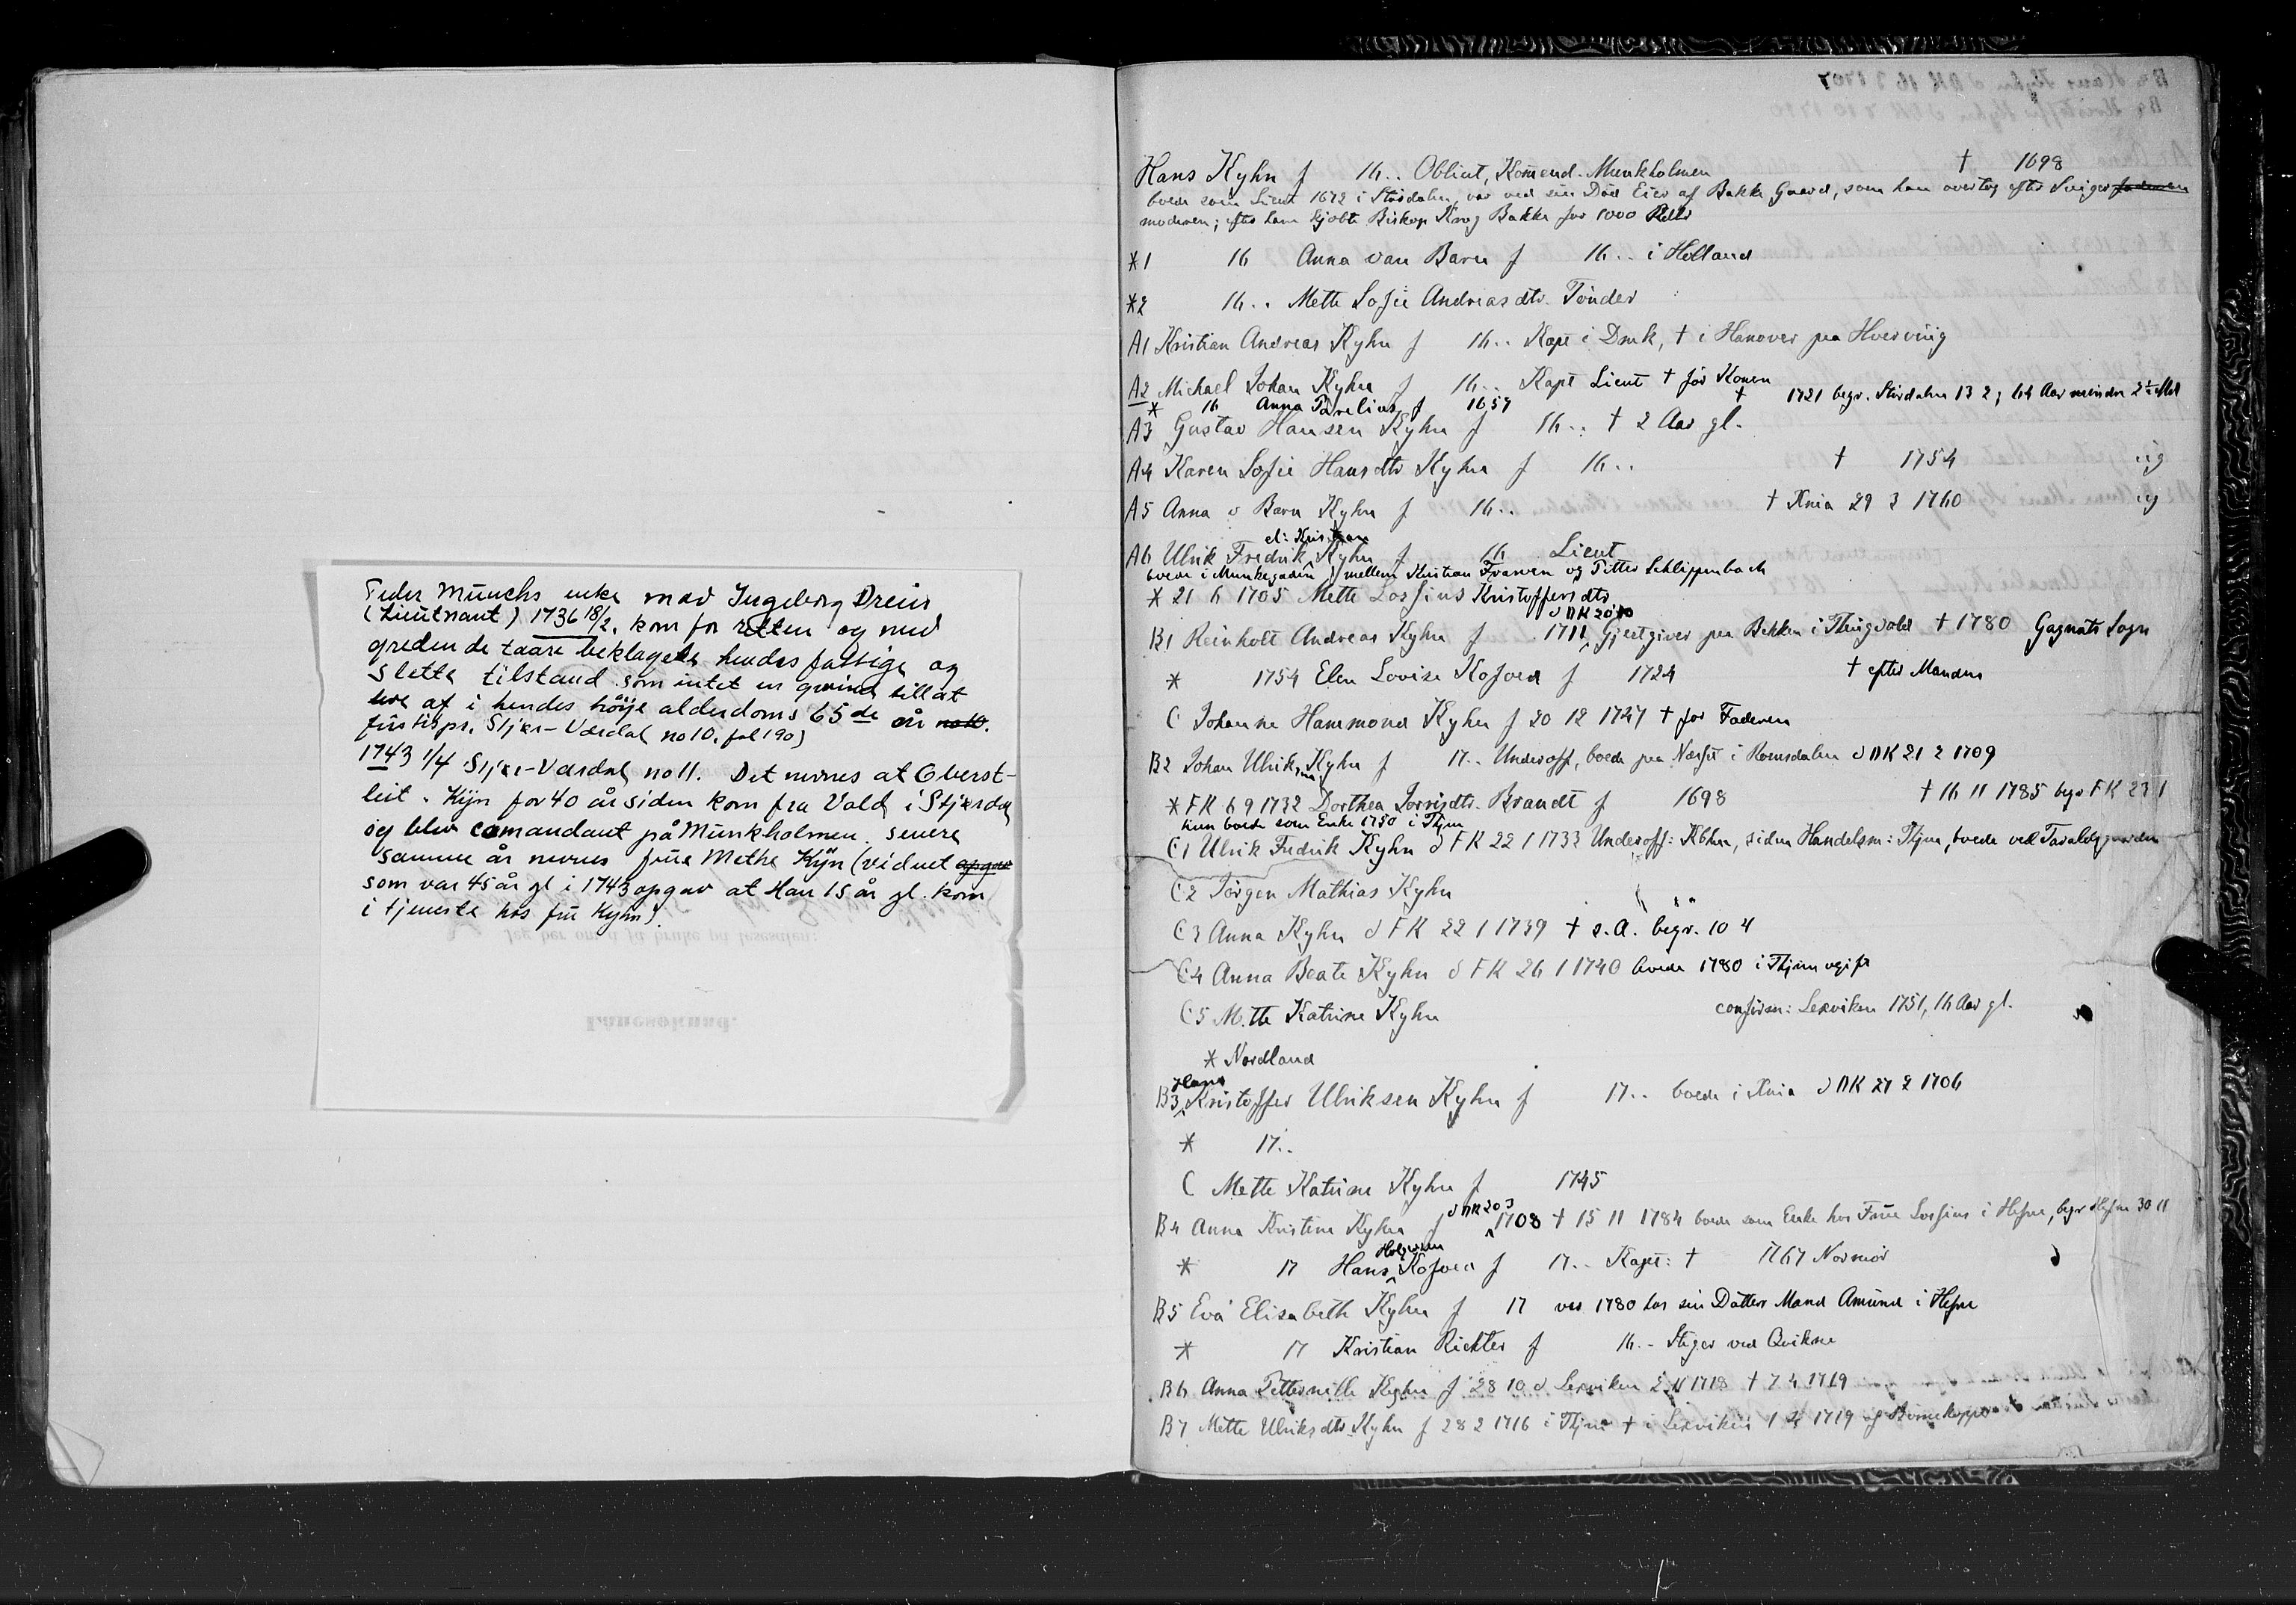 Peder Münchs enke mad Ingeborg Dreier
(Lieutnant) 1736 18/2. kom for retten og med
gredende taare beklagede hendes fattige og
Slette tilstand som intet en qvind till at
leve af i hendes höije alderdoms 65de år no10.
Justispr. Stjør-Værdal no10. fol 190)
1743 1/4 Stjør-Værdal no11. Det nevnes at Oberst-
leit. Kijn for 40 år siden kom fra Vold i Stjørdal
og blev comandant på Munkholmen. senere
samme år nevnes frue Methe Kijn (vidnet opgav
som var 45 år gl i 1743 opgav at Han 15 år gl. kom
i tjeneste hos frü Kyhn).
Jeg ber om å få bruke på lesesalen:
Lånesøknad.
Hans Kyhn f 16.. Oblint, Komend. Munkholmen † 1698
boede som Lieut 1672 i Stördalen, var ved sin Död Eier af Bakke Gaard, som han overtog efter Svigerfaderen
moderen; efter ham kjöbte Biskop Krog Bakke for 1000 Rdlr
*1 16 Anna van Baren f 16.. i Holland
*2 16.. Mette Sofie Andreasdtr. Tönder
A1 Kristian Andreas Kyhn f 16.. Kapt i Dmk, † i Hanover paa Hverving
A2 Michael Johan Kyhn f 16.. Kapt Lieut † för Konen
* 16 Anna Parelius f 1657 † 1721 begr. Stördalen 13 2; 64 Aar mindre 2½ Md
A3 Gustav Hansen Kyhn f 16.. † 2 Aar gl.
A4 Karen Sofie Hansdtr Kyhn f 16.. † 1754 ug
A5 Anna v Baren Kyhn f 16.. † Xnia 29 3 1760 ug
el. Kristian
A6 Ulrik Fredrik Kyhn f 16 Lieut
boede i Munkegaden mellem Kristian Fransen og Petter Schlippenbach
* 21 6 1705 Mette Lossius Kristoffersdtr
d DK 20 10
B1 Reinholt Andreas Kyhn f 1711 Gjestgiver paa Bekken i Thingvold † 1780 Gagnats Sogn
* 1754 Elen Lovise Kofoed f 1724 † efter Manden
C Johanne Hammond Kyhn f 20 12 1727 † for Faderen
B2 Johan Ulriksen Kyhn f 17.. Underoff, boede paa Næsset i Romsdalen d DK 21 2 1709
* FK 6 9 1732 Dorthea Jorrisdtr. Brandt f 1698 † 16 11 1785 begr FK 23 1
hun boede som Enke 1780 i Thjm
C1 Ulrik Fredrik Kyhn d FK 22 1 1733 Underoff: Kbhn, siden Handelsm: Thjm, boede ved Taraldsgaarden
C2 Jörgen Mathias Kyhn " "
C3 Anna Kyhn d FK 22 1 1739 † s.A. begr. 10 4
C4 Anna Beate Kyhn d FK 26 1 1740 boede 1780 i Thjm ugift
C5 Mette Katrine Kyhn confirm: Lexviken 1751, 16 Aar gl.
* Nordland
Hans
B3 Kristoffer Ulriksen Kyhn f 17.. boede i Xnia d DK 27 2 1706
* 17..
C Mette Katrine Kyhn f 1745
d DK 20 3
B4 Anna Kristine Kyhn f 1708 † 15 11 1784 boede som Enke hos Frue Lossius i Hefne, begr Hefne 30 11
* 17 Hans Kofoed f 17.. Kapt: † 1767 Normör
B5 Eva Elisabeth Kyhn f 17 var 1780 hos sin Datters Mand Amund i Hefne
* 17 Kristian Richter f 16.- Stiger ved Qvikne
B6 Anna Petternille Kyhn f 28 10 d Lexviken 2 11 1718 † 7 4 1719
B7 Mette Ulriksdtr. Kyhn f 28 2 1716 i Thjm † i Lexviken 1 4 1719 af Börnekopper